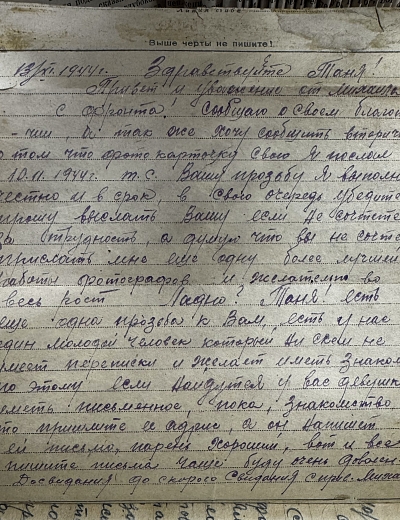 Выше черты не пишите!
13/XI. 1944г. Здравствуйте Таня!
Привет и уважение от Михаила
с фронта. сообщаю о своем благопо
-чии, а так же хочу сообщить вторич
о том что фото карточку свою я послал
10.11.1944г. т.е. Вашу прозьбу я выполн
честно и в срок, в свою очередь убедите
прошу выслать Вашу если не состоте
за трудность, а думаю что вы не состо
выслать мне ещё одну более лучшей
работы фотографов и желательно во
весь рост Ладно? Таня! есть
еще одна прозьба к Вам, есть у нас
один молодой человек который ни с кем не
имеет переписки и желает иметь знаком
по этому если найдутся у вас девушки
иметь письменное, пока, знакомство
то пришлите её адрес, а он напишет
ей письмо, парень хороший, вот и все
пишите письма чаще буду очень доволен
Досвидания до скорого Свидания с прив. Миха